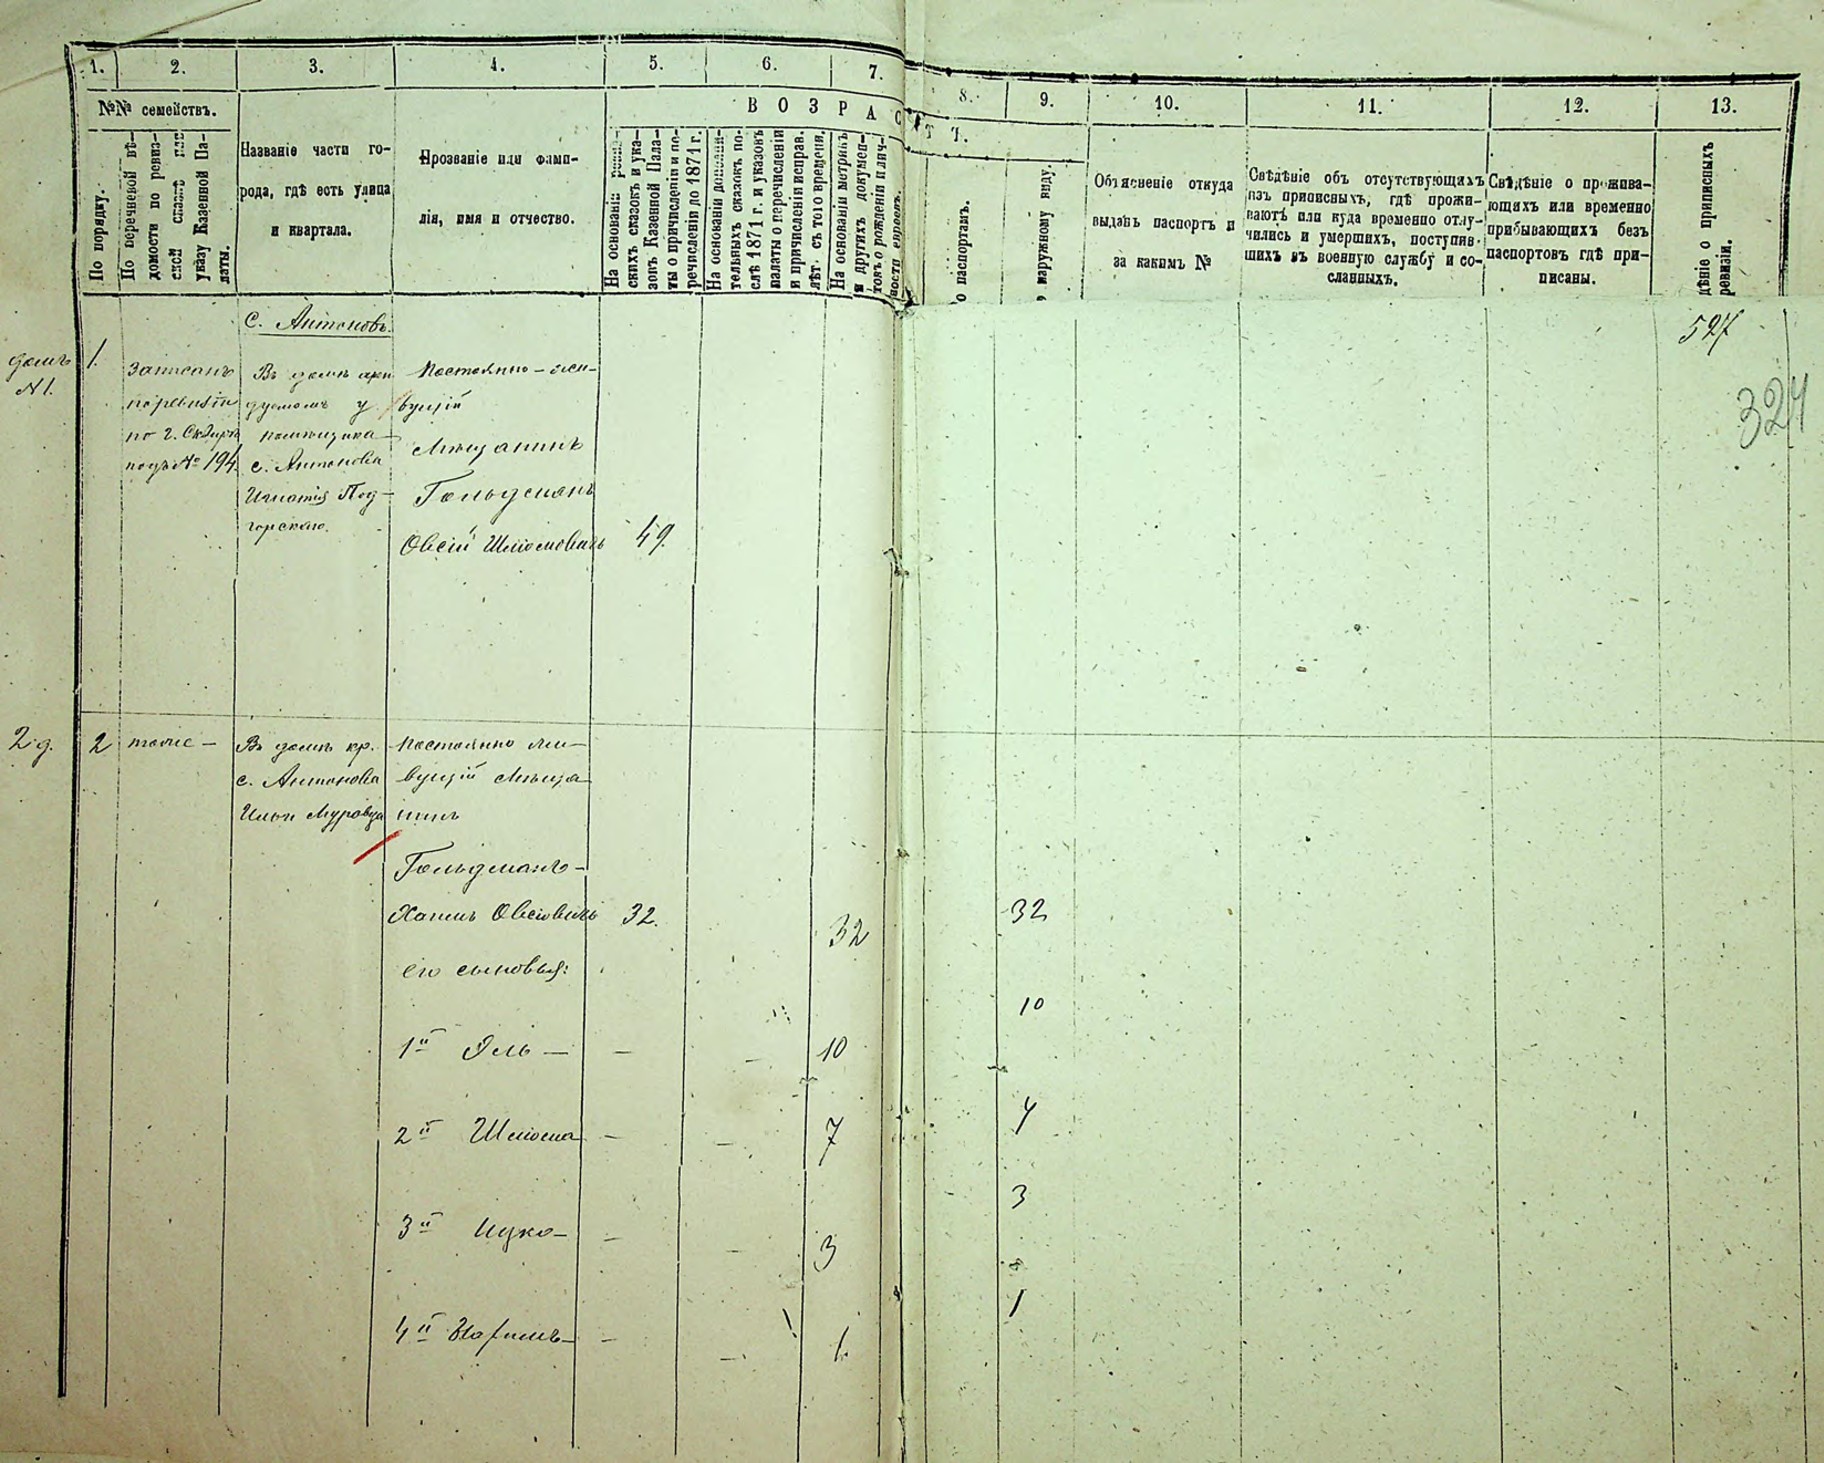 1.
2.
3.
4.
5.
6.
7.
8.
9.
10.
11.
12.
13.
№№ семействъ.
По порядку.
По перечневой вѣ-
домости по ревиз-
ской сказкѣ или
указу Казенной Па-
латы.
Названіе части го-
рода, гдѣ есть улица
и квартала.
Прозваніе или фами-
лія, имя и отчество.
ВОЗРАСТЪ.
На основаніи ревиз-
скихъ сказокъ и ука-
зовъ Казенной Пала-
ты о причисленіи и пе-
речисленіи до 1871 г.
На основаніи дополни-
тельныхъ сказокъ по-
слѣ 1871 г. и указовъ
палаты о перечисленіи
и причисленіи исправ.
лѣт. съ того времени.
На основаніи метрикъ
и другихъ докумен-
товъ о рожденіи и лич-
ности евреевъ.
о паспортамъ.
наружному виду.
Объясненіе откуда
выданъ паспортъ и
за какимъ №
Свѣдѣніе объ отсутствующихъ
изъ приписныхъ, гдѣ прожи-
ваютъ или куда временно отлу-
чились и умершихъ, поступив-
шихъ въ военную службу и со-
сланныхъ.
Свѣдѣніе о прожива-
ющихъ или временно
прибывающихъ безъ
паспортовъ гдѣ при-
писаны.
дѣніе о приписныхъ
ревизіи.
527
324
с. Антоновъ.
домъ
№1.
1.
Записанъ
по ревизіи
по г. Сквирѣ
подъ № 194.
Въ домѣ арен
дуемомъ у
помѣщика
с. Антонова
Игнатія Под-
горскаго.
Постоянно-жи-
вущій
Мѣщанинъ
Гольдманъ
Овсій Шліомовичъ
49.
2 д.
2
тоже —
Въ домѣ кр.
с. Антонова
Ильи Муровца
Постоянно жи-
вущій Мѣща-
нинъ
Гольдманъ-
Хаимъ Овсіовичъ
32.
32
32
его сыновья:
1й Эль — — — 10
10
2й Шліома — — 7
7
3й Ицко — — — 3
3
4й — — — 1.
1